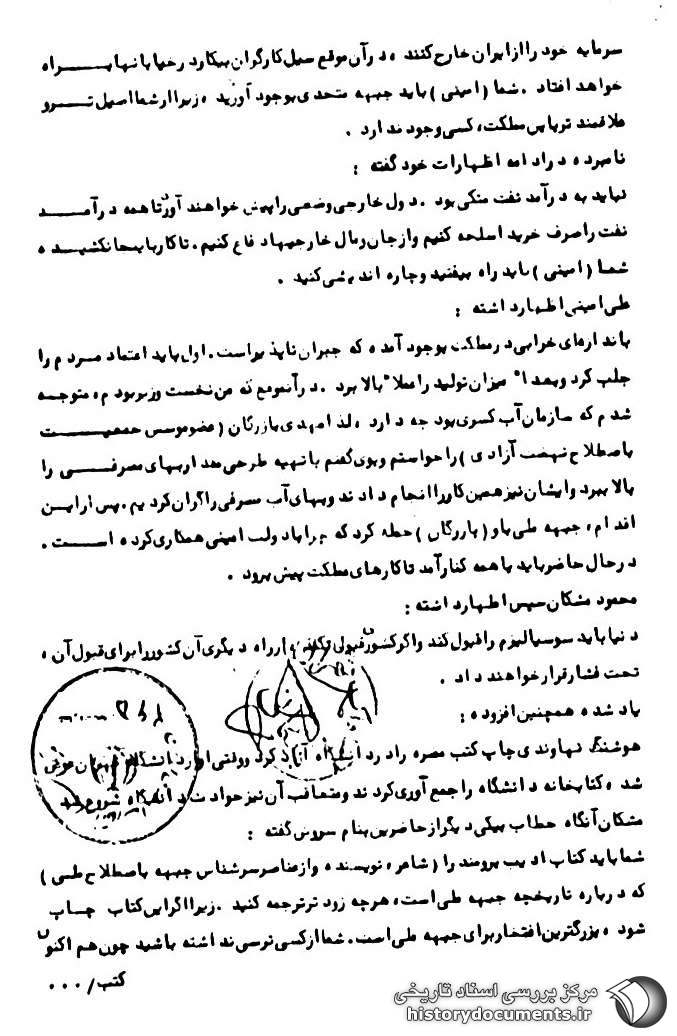 سرمایه خود را از ایران خارج کنند و در آن موقع سیل کارگران بیکار در خیابانها براه
خواهد افتاد . شما (امینی) باید جبهه متحدی بوجود آورید ، زیرا از شما اصیل تر و
علاقمند تر باین مملکت، کسی وجود ندارد .
نامبرده در ادامه اظهارات خود گفته :
نباید به درآمد نفت متکی بود . دول خارجی وضعی را پیش خواهند آورد تا همه درآمد
نفت را صرف خرید اسلحه کنیم و از جان و مال خارجیها دفاع کنیم . تا کار باینجا نکشیده
شما (امینی) باید راه بیفتید و چاره اندیشی کنید .
علی امینی اظهار داشته :
باندازه‌ای خرابی در مملکت بوجود آمده که جبران ناپذیر است . اول باید اعتماد مردم را
جلب کرد و بعداً میزان تولید را عملاً بالا برد . در آنموقع که من نخست وزیر بودم، متوجه
شدم که سازمان آب کسری بودجه دارد ، لذا مهدی بازرگان (عضو موسس جمعیت
باصطلاح نهضت آزادی) را خواستم و بوی گفتم با تهیه طرحی مقدار بهای مصرفی را
بالا ببرد و ایشان نیز همین کار را انجام دادند و بهای آب مصرفی را گران کردیم . پس از این
اقدام، جبهه ملی باو (بازرگان) حمله کرد که چرا با دولت امینی همکاری کرده است .
در حال حاضر باید با همه کنار آمد تا کارهای مملکت پیش برود .
محمود مشکان سپس اظهار داشته :
دنیا باید سوسیالیزم را قبول کند و اگر کشور قبولی نکند، از راه دیگری آن کشور را برای قبول آن ،
تحت فشار قرار خواهند داد .
یاد شده همچنین افزوده :
هوشنگ نهاوندی چاپ کتب مصره را در دانشگاه آزاد کرد و وقتی
شد ، کتابخانه دانشگاه را جمع آوری کردند و متعاقب آن نیز حوادث دانشگاه شروع شد
مشکان آنگاه خطاب بیکی دیگر از حاضرین بنام سروش گفته :
شما باید کتاب ادیب برومند را (شاعر، نویسنده و از عناصر سرشناس جبهه باصطلاح ملی)
که درباره تاریخچه جبهه ملی است، هرچه زودتر ترجمه کنید . زیرا اگر این کتاب چاپ
شود ، بزرگترین افتخار برای جبهه ملی است . شما از کسی ترسی نداشته باشید چون هم اکنون
کتب / ۰۰۰
مرکز بررسی اسناد تاریخی
historydocuments.ir